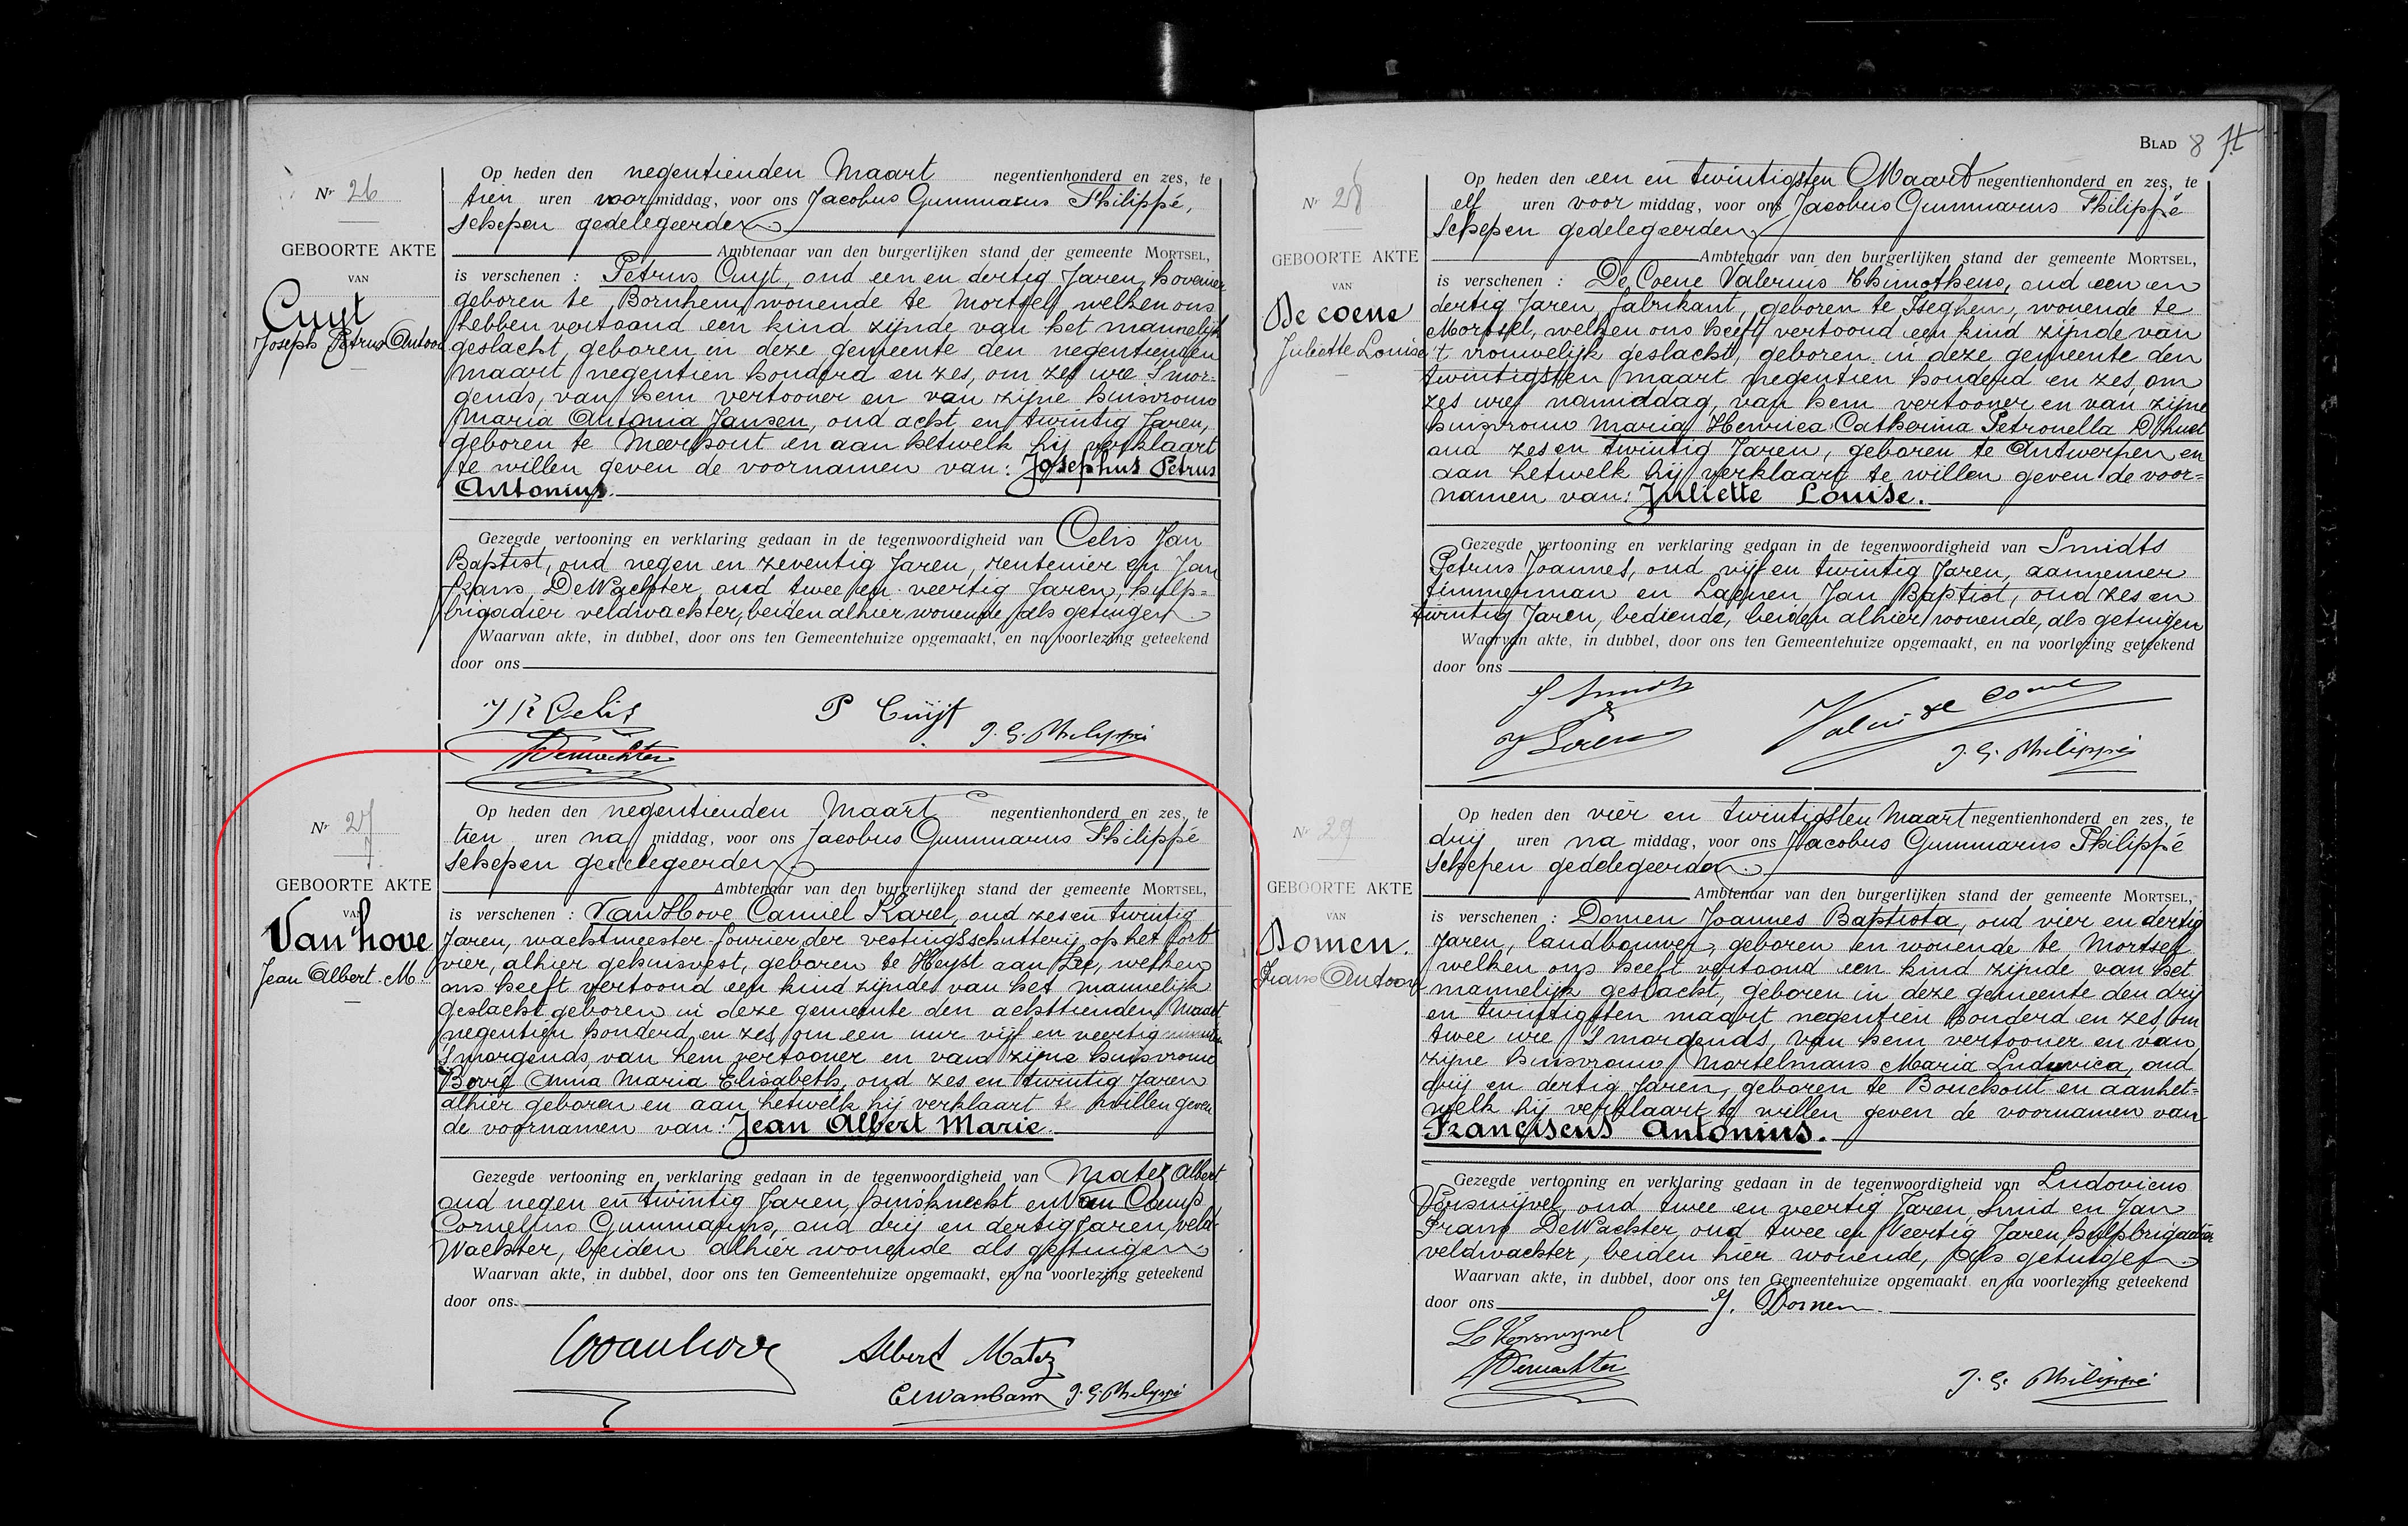 Nr 26
GEBOORTE AKTE
VAN
Cuyt
Joseph Petrus Antoon
Op heden den negentienden Maart negentienhonderd en zes, te
tien uren voormiddag, voor ons Jacobus Gummarus Philippé,
schepen gedelegeerden
Ambtenaar van den burgerlijken stand der gemeente MORTSEL,
is verschenen : Petrus Cuyt, oud een en dertig Jaren, hovenier
geboren te Bornhem, wonende te Mortsel, welken ons
hebben vertoond een kind zijnde van het mannelijk
geslacht, geboren in deze gemeente den negentienden
maart negentien honderd en zes, om zes ure 'smor-
gends, van hem vertooner en van zijne huisvrouw
Maria Antonia Jansen, oud acht en twintig Jaren,
geboren te Meerhout en aan hetwelk hij verklaart
te willen geven de voornamen van: Josephus Petrus
Antonius.
Gezegde vertooning en verklaring gedaan in de tegenwoordigheid van Celis Jan
Baptist, oud negen en zeventig Jaren, rentenier en Jan
Frans DeWachter, oud twee en veertig Jaren, hulp-
brigadier veldwachter, beiden alhier wonende, als getuigen
Waarvan akte, in dubbel, door ons ten Gemeentehuize opgemaakt, en na voorlezing geteekend
door ons
J B Celis P Cuijt J. G. Philippé
Dewachter
Nr 27
GEBOORTE AKTE
VAN
Van hove
Jean Albert M.
Op heden den negentienden Maart negentienhonderd en zes, te
tien uren na middag, voor ons Jacobus Gummarus Philippé
schepen gedelegeerden
Ambtenaar van den burgerlijken stand der gemeente MORTSEL,
is verschenen : VanHove Camiel Karel, oud zes en twintig
Jaren, wachtmeester-fourier der vestingsschutterij op het fort
vier, alhier gehuisvest, geboren te Heyst aan Zee, welken
ons heeft vertoond een kind zijnde van het mannelijk
geslacht geboren in deze gemeente den achttienden Maart
negentien honderd en zes, om een uur vijf en veertig minuten
'smorgends, van hem vertooner en van zijne huisvrouw
Bovie Anna Maria Elisabeth, oud zes en twintig Jaren
alhier geboren en aan hetwelk hij verklaart te willen geven
de voornamen van: Jean Albert Marie.
Gezegde vertooning en verklaring gedaan in de tegenwoordigheid van Matez Albert
oud negen en twintig Jaren, huisknecht en Van Camp
Cornelius Gummarus, oud drij en dertig Jaren, veld-
Wachter, beiden alhier wonende als getuigen
Waarvan akte, in dubbel, door ons ten Gemeentehuize opgemaakt, en na voorlezing geteekend
door ons.
CVanhove Albert Matez
J. G. Philippé
BLAD 8
Nr 28
GEBOORTE AKTE
VAN
De coene
Juliette Louise
Op heden den een en twintigsten Maart negentienhonderd en zes, te
elf uren voor middag, voor ons Jacobus Gummarus Philippé
schepen gedelegeerden
Ambtenaar van den burgerlijken stand der gemeente MORTSEL,
is verschenen : De Coene Valerius Thimotheus, oud een en
dertig Jaren, fabrikant, geboren te Iseghem, wonende te
Mortsel, welken ons heeft vertoond een kind zijnde van
't vrouwelijk geslacht, geboren in deze gemeente den
twintigsten maart negentien honderd en zes, om
zes ure namiddag, van hem vertooner en van zijne
huisvrouw Maria Henrica Catherina Petronella
oud zes en twintig Jaren, geboren te Antwerpen en
aan hetwelk hij verklaart te willen geven de voor-
namen van: Juliette Louise.
Gezegde vertooning en verklaring gedaan in de tegenwoordigheid van Smidts
Petrus Joannes, oud vijf en twintig Jaren, aannemer
timmerman en Jan Baptist, oud zes en
twintig Jaren, bediende, beiden alhier wonende, als getuigen
Waarvan akte, in dubbel, door ons ten Gemeentehuize opgemaakt, en na voorlezing geteekend
door ons
J. G. Philippé
Nr 29
GEBOORTE AKTE
VAN
Domen.
Frans Antoon
Op heden den vier en twintigsten Maart negentienhonderd en zes, te
drij uren na middag, voor ons Jacobus Gummarus Philippé
schepen gedelegeerden
Ambtenaar van den burgerlijken stand der gemeente MORTSEL,
is verschenen : Domen Joannes Baptista, oud vier en dertig
Jaren, landbouwer, geboren en wonende te Mortsel
welken ons heeft vertoond een kind zijnde van het
mannelijk geslacht, geboren in deze gemeente den drij
en twintigsten maart negentien honderd en zes, om
twee ure 's morgends, van hem vertooner en van
zijne huisvrouw Mortelmans Maria Ludovica, oud
drij en dertig Jaren, geboren te Bouchout en aan het-
welk hij verklaart te willen geven de voornamen van
Franciscus Antonius.
Gezegde vertooning en verklaring gedaan in de tegenwoordigheid van Ludovicus
oud twee en veertig Jaren, smid en Jan
Frans DeWachter, oud twee en veertig Jaren, hulpbrigadier
veldwachter, beiden hier wonende, als getuigen
Waarvan akte, in dubbel, door ons ten Gemeentehuize opgemaakt en na voorlezing geteekend
door ons J. Domen
Dewachter
J. G. Philippé